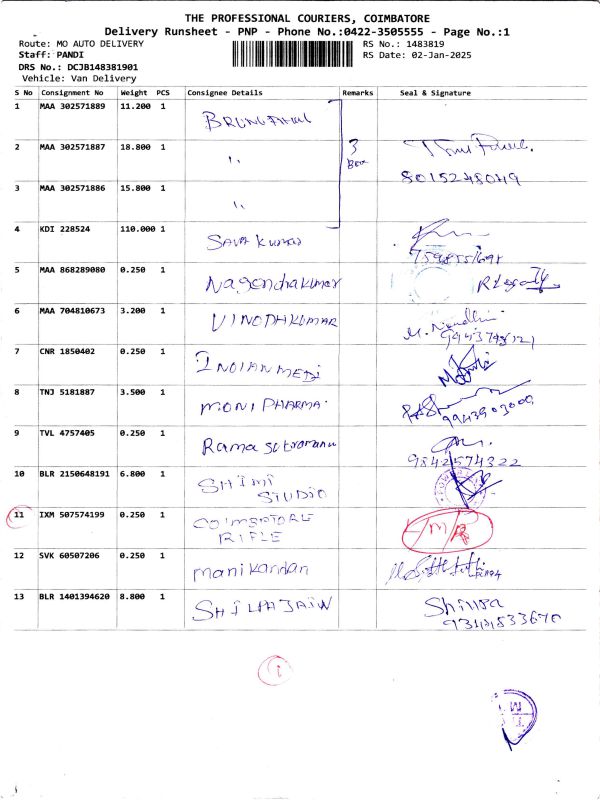 THE PROFESSIONAL COURIERS, COIMBATORE
Delivery Runsheet - PNP - Phone No.:0422-3505555 - Page No.:1
Route: MO AUTO DELIVERY
RS No.: 1483819
Staff: PANDI
RS Date: 02-Jan-2025
DRS No.: DCJB148381901
Vehicle: Van Delivery
S No Consignment No Weight PCS Consignee Details Remarks Seal & Signature
1 MAA 302571889 11.200 1
2 MAA 302571887 18.800 1 " 3 Box
8015248049
3 MAA 302571886 15.800 1 "
4 KDI 228524 110.000 1 Kumar
5 MAA 868289080 0.250 1 Nagendhakumar
6 MAA 704810673 3.200 1 VINODHKUMAR M. Nandhini
7 CNR 1850402 0.250 1 INDIAN MEDI
8 TNJ 5181887 3.500 1 MONI PHARMA
9943903000
9 TVL 4757405 0.250 1 Rama
9842574322
10 BLR 2150648191 6.800 1 SHIMI
STUDIO
11 IXM 507574199 0.250 1 COIMBATORE
RIFLE
12 SVK 60507206 0.250 1 Manikandan
13 BLR 1401394620 8.800 1 SHILPA JAIN Shilpa